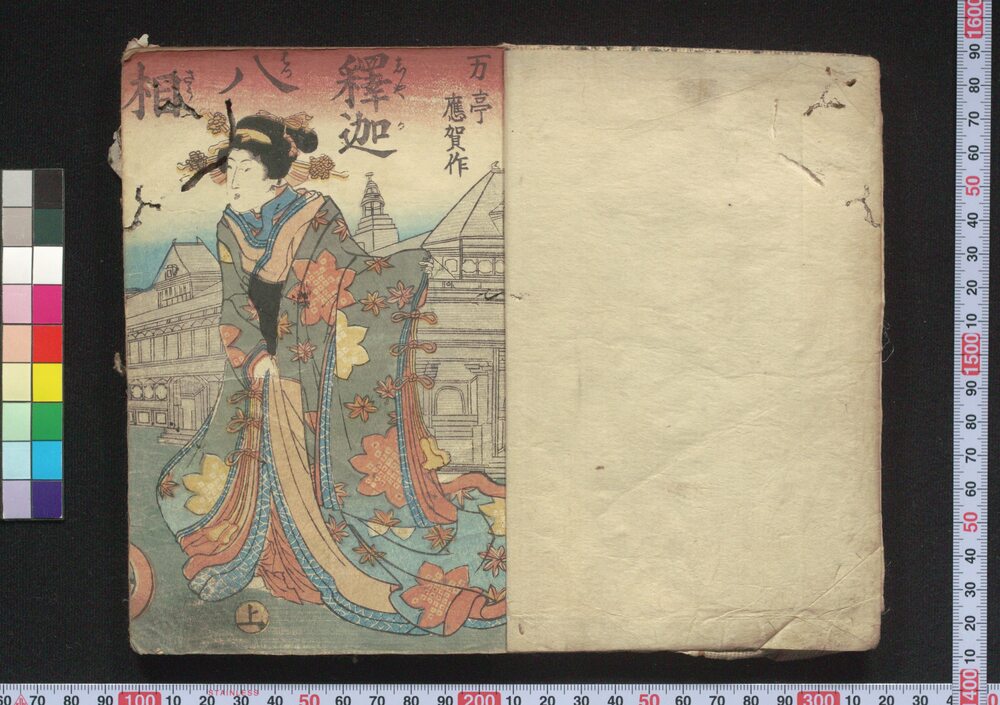 万亭
應賀作
釋迦
しやか
八
はつ
相
さう
上
STAINLESS
1600
90
80
70
60
50
40
30
20
10
1500
90
80
70
60
50
40
30
20
10
1400
60 70 80 90 100 10 20 30 40 50 60 70 80 90 200 10 20 30 40 50 60 70 80 90 300 10 20 30 40